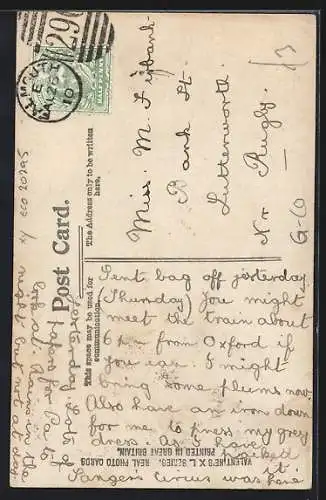 FALMOUTH
E
AU 26
10
29
HALFPENNY
Post Card.
The Address only to be written
here.
This space may be used for
communication.
VALENTINE'S X L SERIES. REAL PHOTO CARDS
PRINTED IN GREAT BRITAIN.
Miss. M. Fishbank
Bank St.
Lutterworth.
Nr Rugby.
Sent bag off yesterday
(Thursday) You might
meet the train about
6 from Oxford if
you can. I might
bring some plums now
Also have an iron down
for me to press my grey
dress. As I have
packed it.
Sanger's Circus was here
yesterday. Lots of
Rain in the
night but not at day
xy eco 20295
G-10